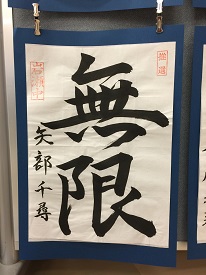 無限
矢部千尋